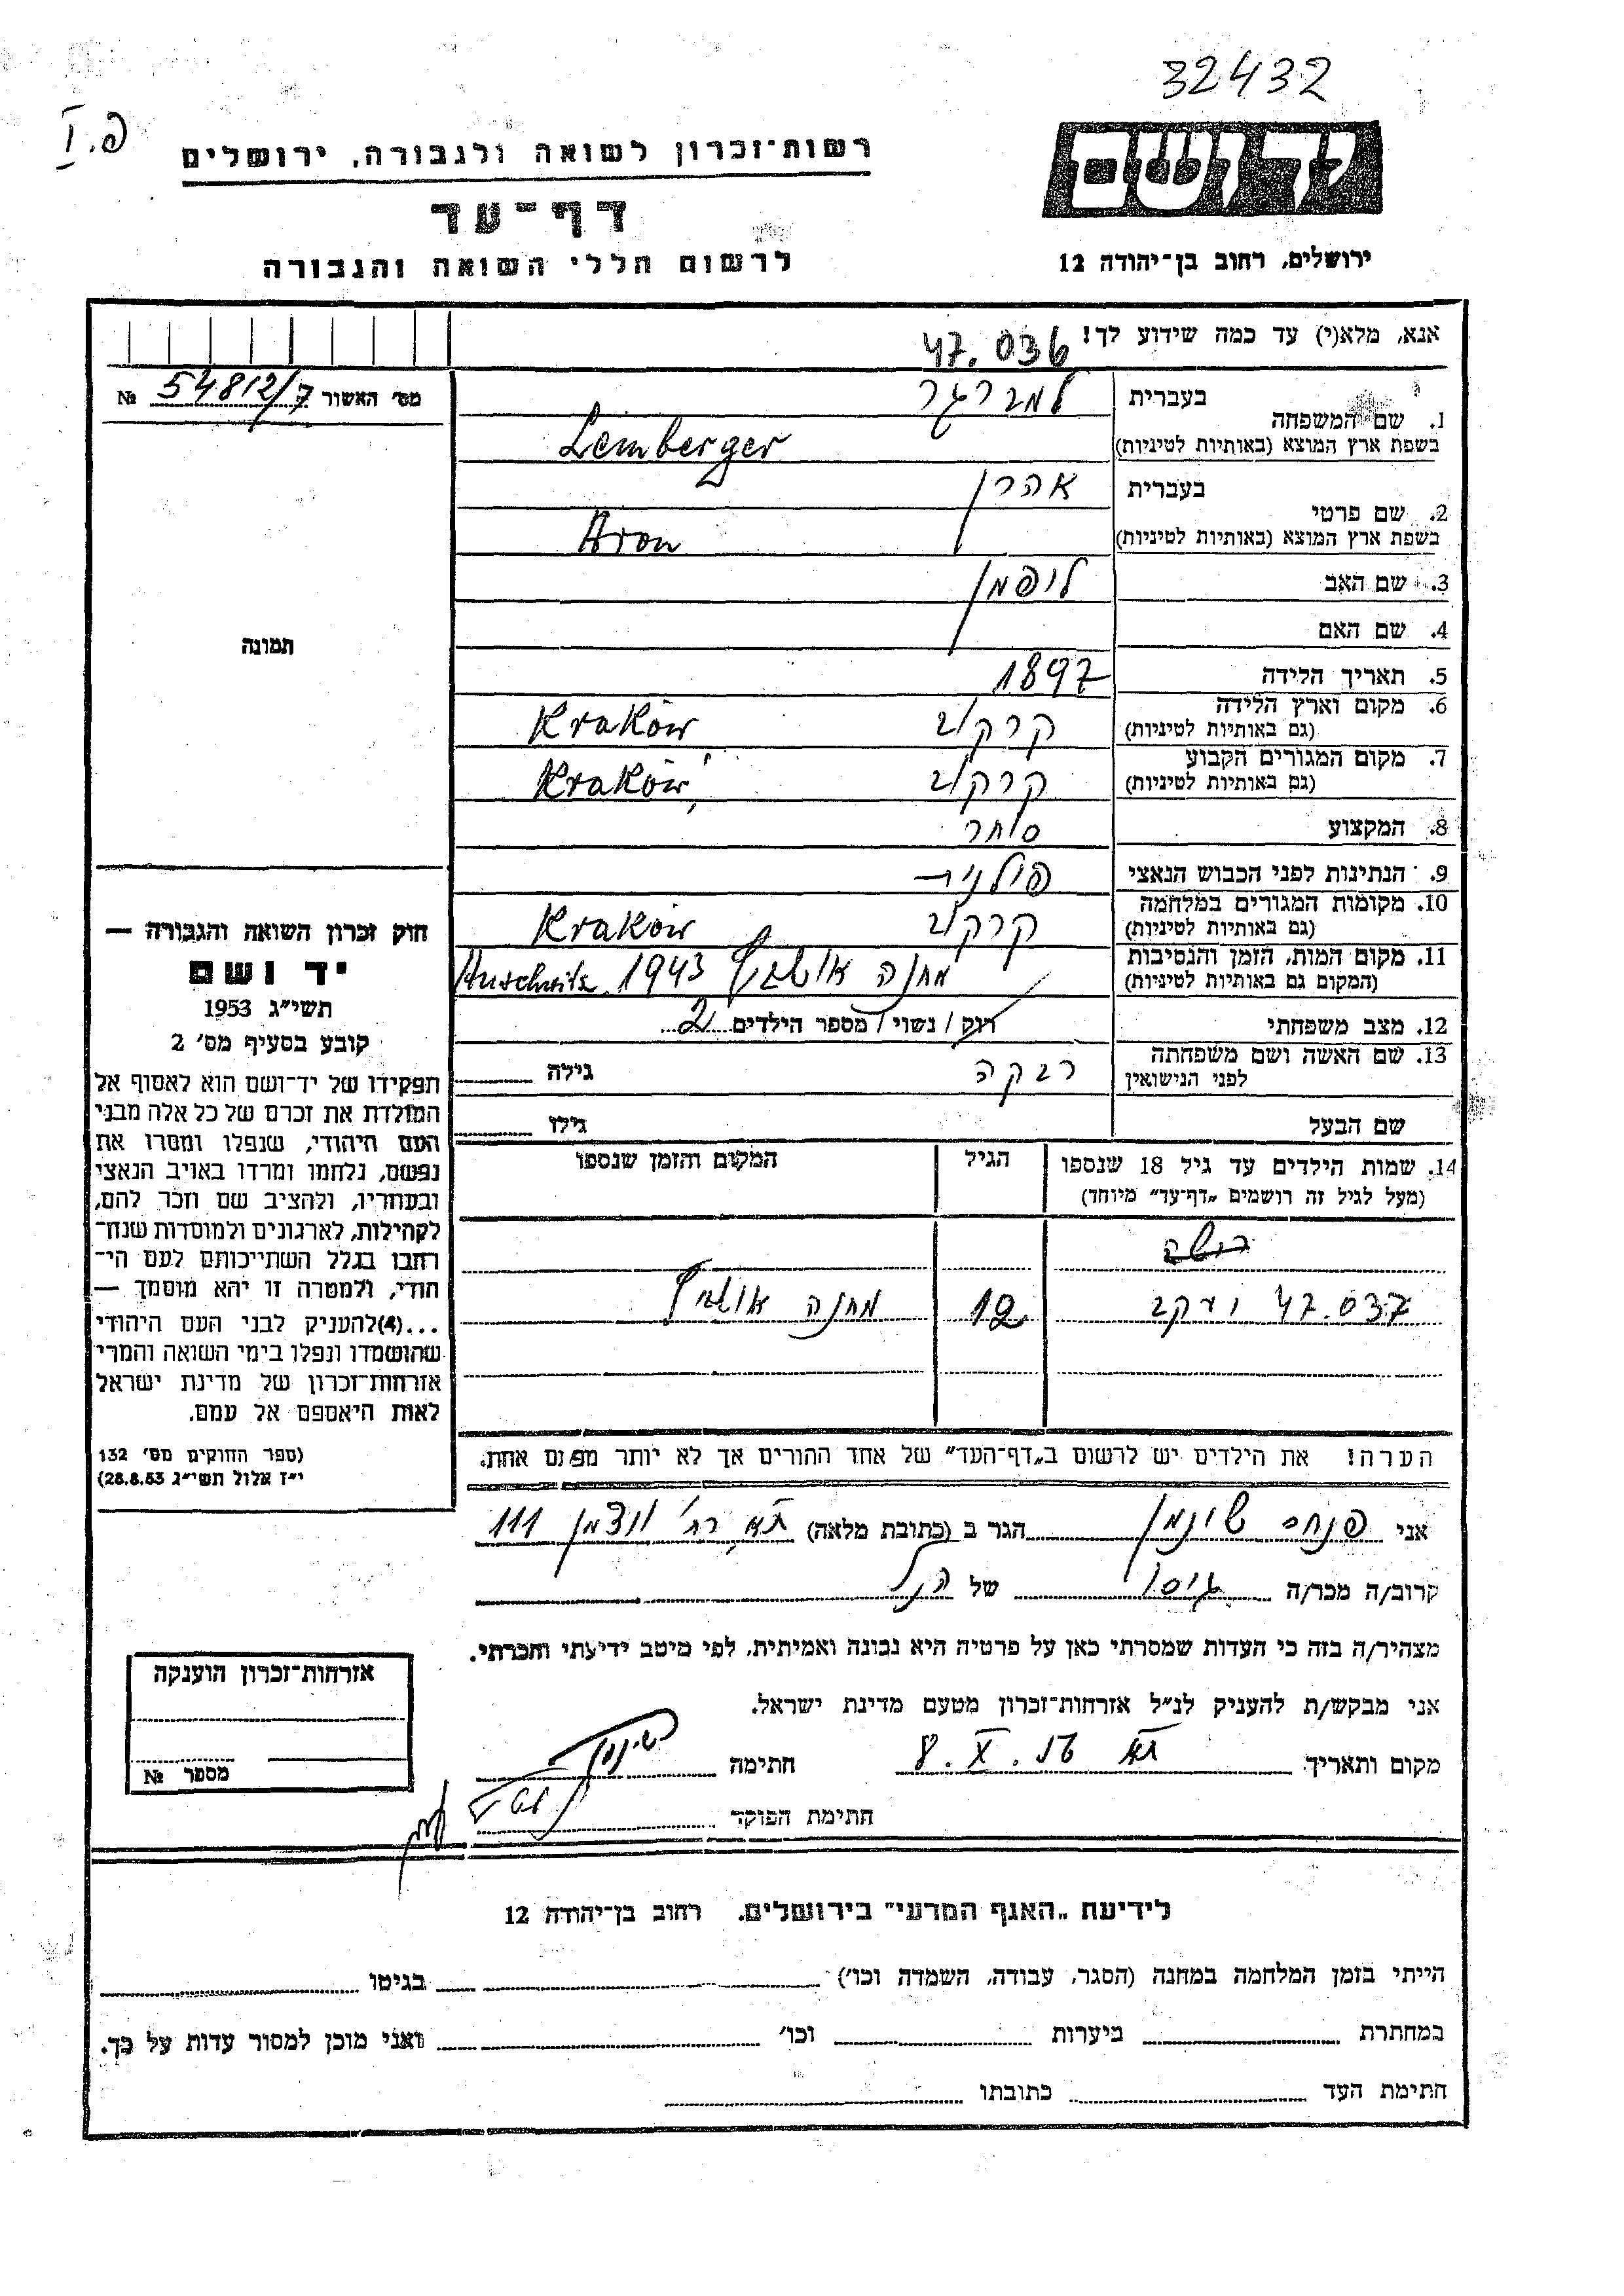 32432
פ. I
יד ושם
רשות־זכרון לשואה ולגבורה, ירושלים
דף־עד
לרשום חללי השואה והגבורה
ירושלים, רחוב בן־יהודה 12
אנא, מלא(י) עד כמה שידוע לך!
47.036
מס׳ האשור 54812/7 №
1. שם המשפחה
בעברית למברגר
בשפת ארץ המוצא (באותיות לטיניות) Lemberger
2. שם פרטי
בעברית אהרן
בשפת ארץ המוצא (באותיות לטיניות) Aron
3. שם האב ליפמן
4. שם האם
5. תאריך הלידה 1897
6. מקום וארץ הלידה
(גם באותיות לטיניות) קרקוב Kraków
7. מקום המגורים הקבוע
(גם באותיות לטיניות) קרקוב Kraków
8. המקצוע סוחר
9. הנתינות לפני הכבוש הנאצי פולנית
10. מקומות המגורים במלחמה
(גם באותיות לטיניות) קרקוב Kraków
11. מקום המות, הזמן והנסיבות
(המקום גם באותיות לטיניות) מחנה אושביץ 1943 Auschwitz
12. מצב משפחתי רוק / נשוי / מספר הילדים 2
13. שם האשה ושם משפחתה
לפני הנישואין רבקה גילה
שם הבעל גילו
תמונה
חוק זכרון השואה והגבורה —
יד ושם
תשי״ג 1953
קובע בסעיף מס׳ 2
תפקידו של יד־ושם הוא לאסוף אל
המולדת את זכרם של כל אלה מבני
העם היהודי, שנפלו ומסרו את
נפשם, נלחמו ומרדו באויב הנאצי
ובעוזריו, ולהציב שם וזכר להם,
לקהילות, לארגונים ולמוסדות שנח־
רחבו בגלל השתייכותם לעם הי־
הודי, ולמטרה זו יהא מוסמך —
...(4) להעניק לבני העם היהודי
שהושמדו ונפלו בימי השואה והמרי
אזרחות־זכרון של מדינת ישראל
לאות היאספם אל עמם.
(ספר החוקים מס׳ 132
י״ז אלול תשי״ג 28.8.53)
14. שמות הילדים עד גיל 18 שנספו
(מעל לגיל זה רושמים „דף־עד״ מיוחד)
הגיל
המקום והזמן שנספו
47.037 יעקב 12 מחנה אושביץ
הערה! את הילדים יש לרשום ב„דף־העד״ של אחד ההורים אך לא יותר מפעם אחת.
אני פנחס שינמן הגר ב (כתובת מלאה) ת״א רח׳ ויצמן 111
קרוב/ה מכר/ה גיסו של הנ״ל
מצהיר/ה בזה כי העדות שמסרתי כאן על פרטיה היא נכונה ואמיתית, לפי מיטב ידיעתי והכרתי.
אני מבקש/ת להעניק לנ״ל אזרחות־זכרון מטעם מדינת ישראל.
מקום ותאריך ת״א 8.X.56 חתימה
חתימת הפוקד
אזרחות־זכרון הוענקה
מספר №
לידיעת „האגף המדעי״ בירושלים, רחוב בן־יהודה 12
הייתי בזמן המלחמה במחנה (הסגר, עבודה, השמדה וכו׳) בגיטו
במחתרת ביערות וכו׳ ואני מוכן למסור עדות על כך.
חתימת העד כתובתו